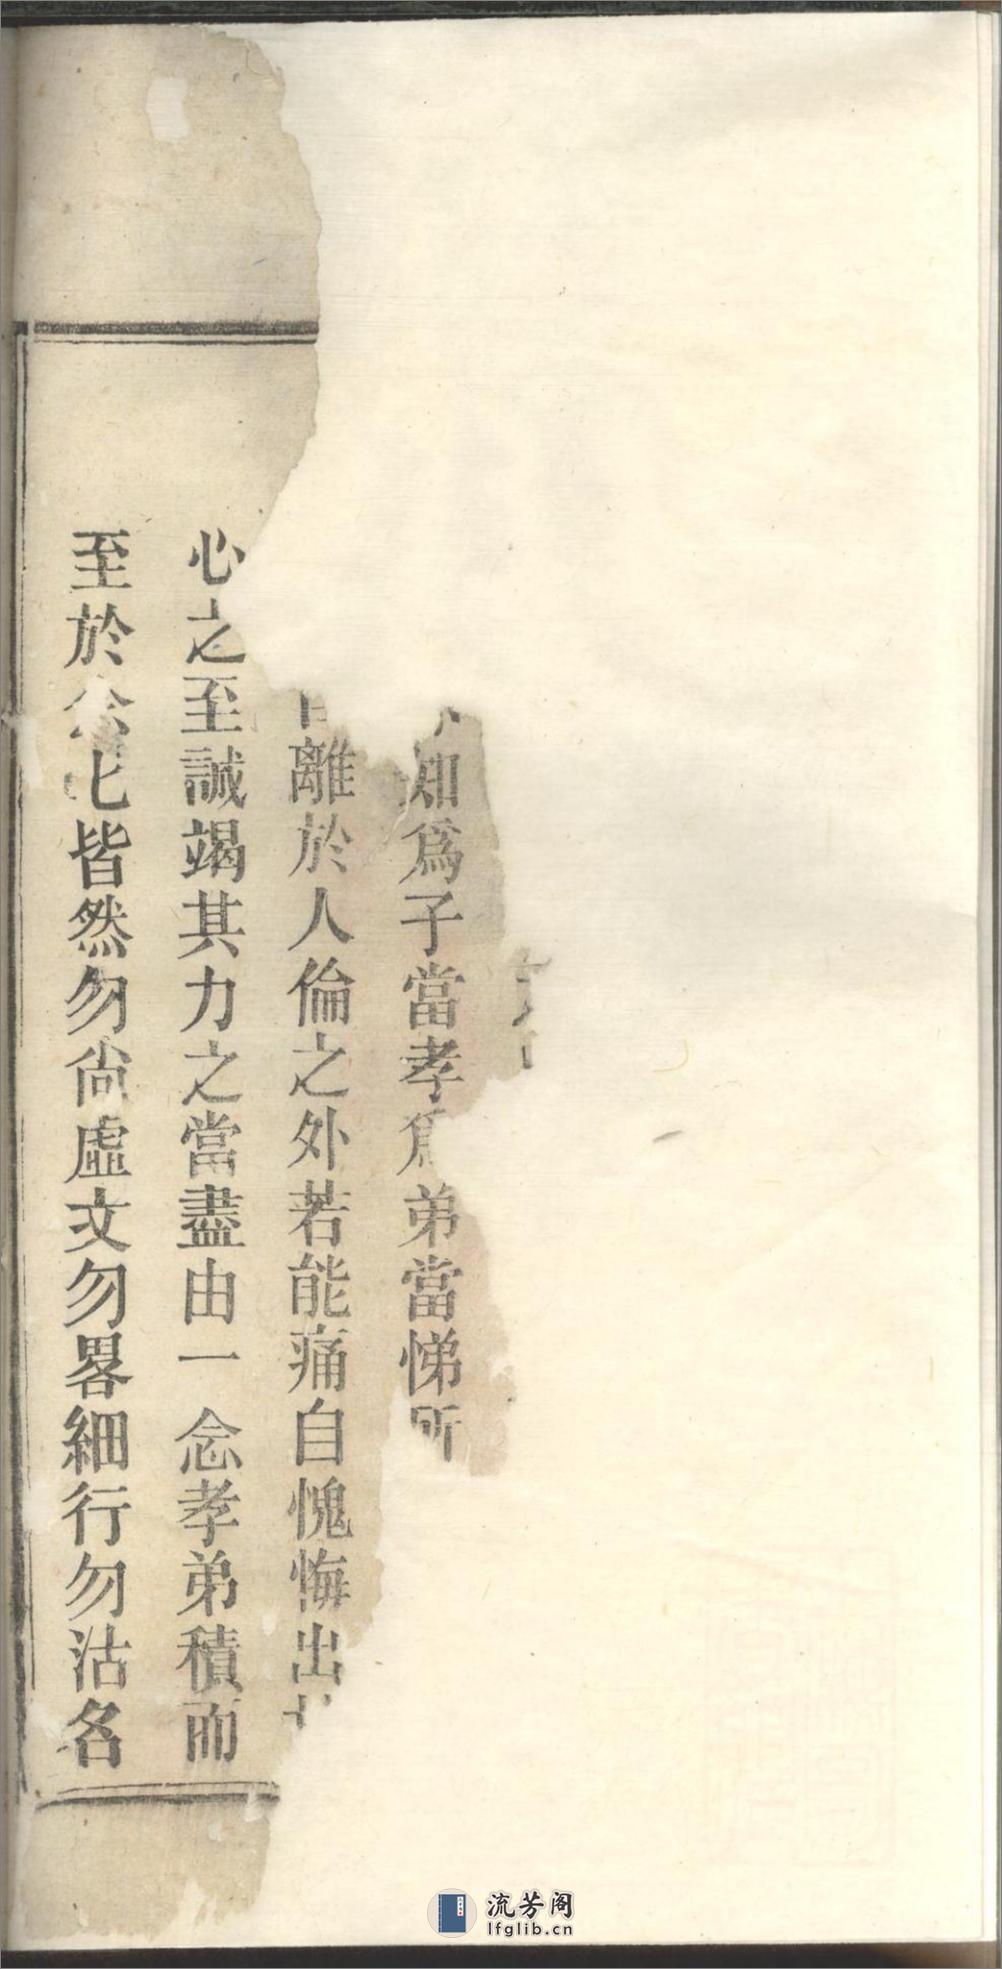 知爲子當孝爲弟當悌所
離於人倫之外若能痛自愧悔出
心之至誠竭其力之當盡由一念孝弟積而
至於念化皆然勿尚虛文勿畧細行勿沽名
流芳阁
lfglib.cn